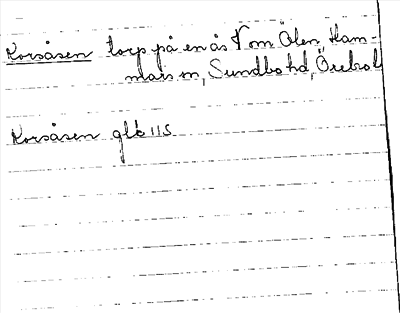 Korsåsen torp på en ås V om Ölen, Ham-
mars sn, Sundbo hd, Örebro l
Korsåsen glk 115